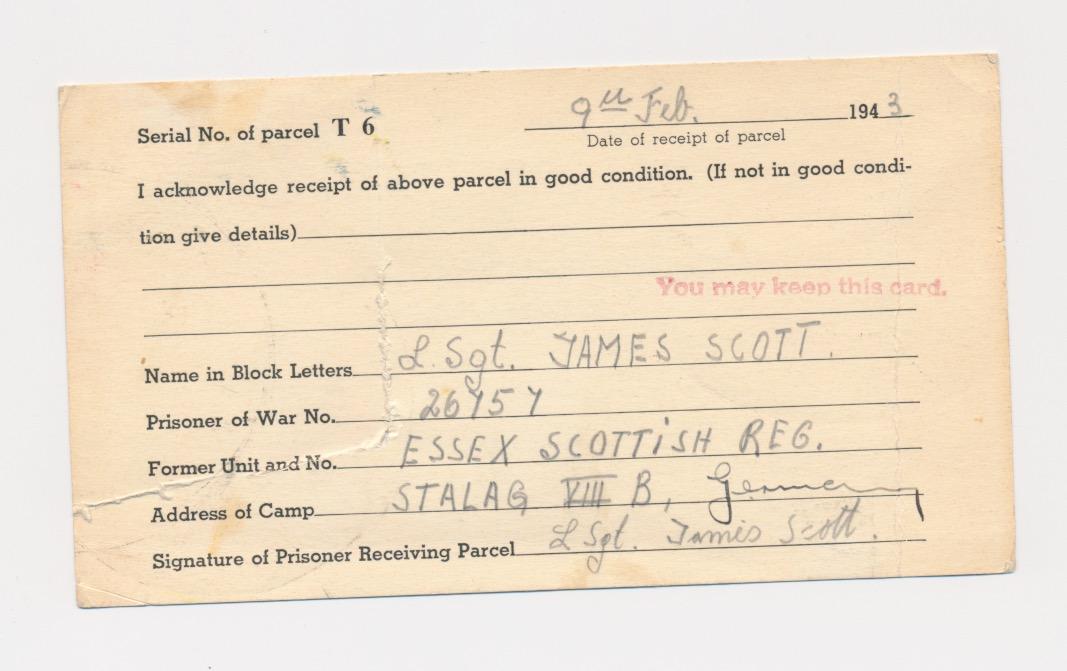 Serial No. of parcel T 6 9th Feb. 1943
Date of receipt of parcel
I acknowledge receipt of above parcel in good condition. (If not in good condi-
tion give details)
You may keep this card.
Name in Block Letters L. Sgt. JAMES SCOTT.
Prisoner of War No. 26757
Former Unit and No. ESSEX SCOTTiSH REG.
Address of Camp STALAG VIII B, Germany
Signature of Prisoner Receiving Parcel L Sgt. James Scott.